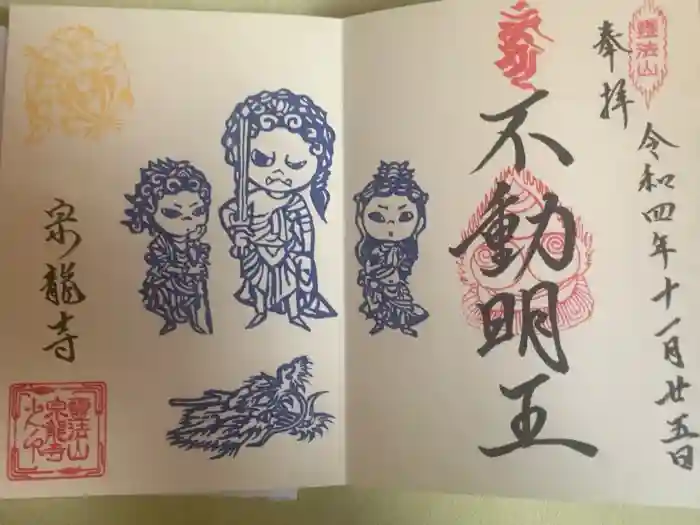 靈法山
奉拝
令和四年十一月廿五日
不動明王
宗龍寺
靈法山
宗龍寺